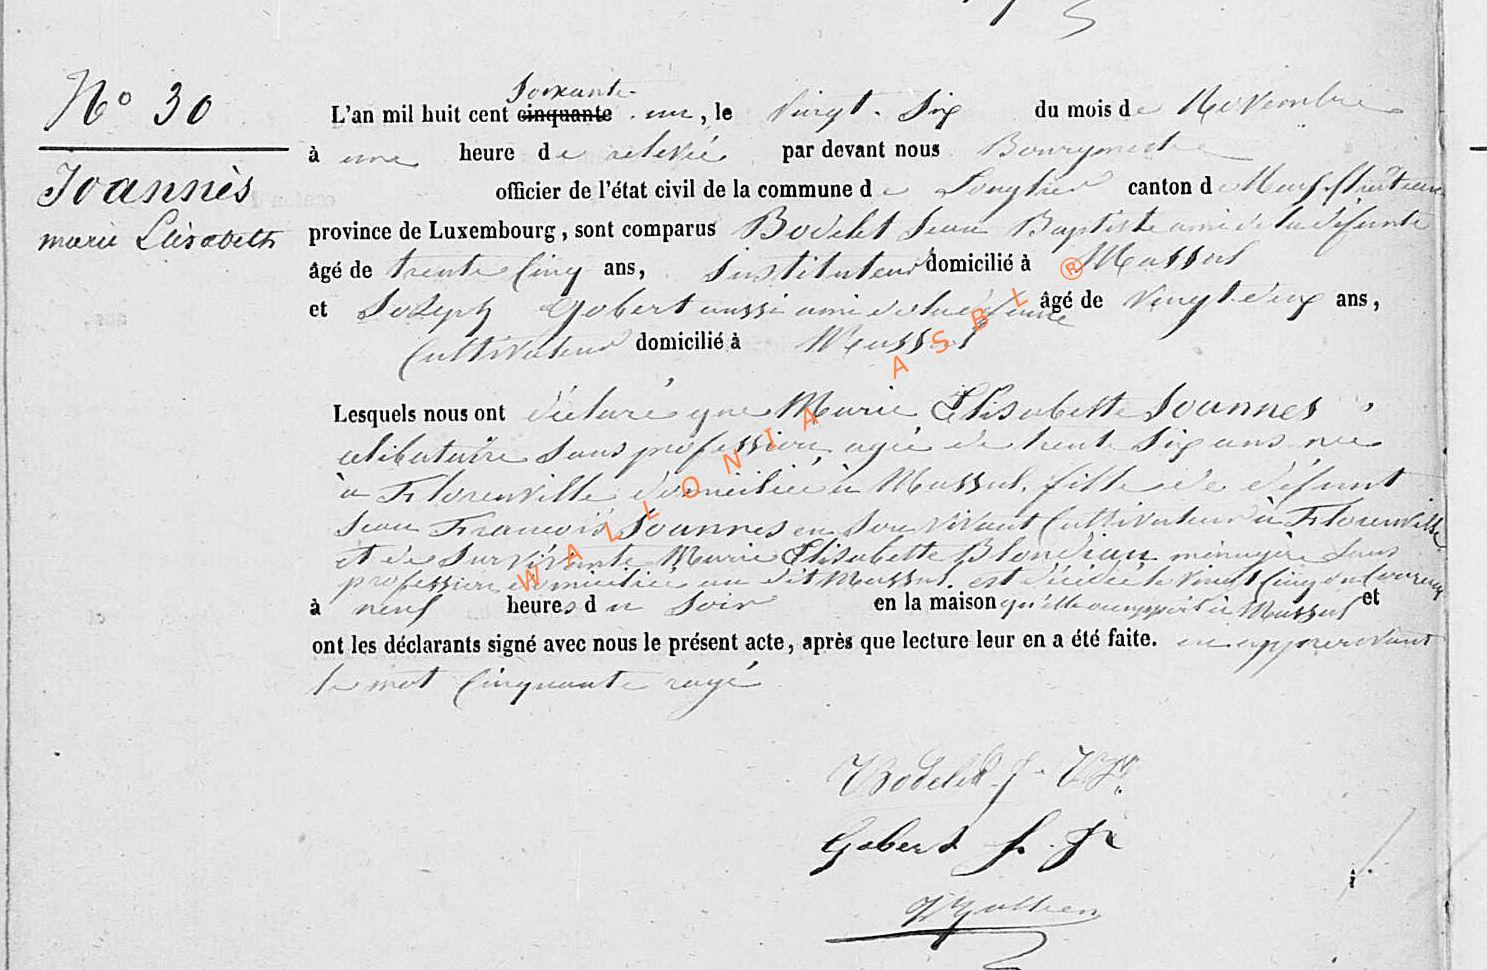 N° 30
Joannès
marie Elisabeth
soixante
L'an mil huit cent cinquante un, le vingt-six du mois de Novembre
à une heure de relevée par devant nous Bourgmestre
officier de l'état civil de la commune de Longlier canton de Neufchâteau
province de Luxembourg, sont comparus Bodelet Jean Baptiste ami de la défunte
âgé de trente cinq ans, instituteur domicilié à Massul
et Joseph Gobert aussi ami de la défunte âgé de vingt deux ans,
cultivateur domicilié à Massul
Lesquels nous ont déclaré que Marie Elisabette Joannes,
célibataire sans profession, agée de trente six ans née
à Florenville domiciliée à Massul, fille de défunt
Jean François Joannes en son vivant cultivateur à Florenville
et de survivante Marie Elisabette Blondiau ménagère sans
profession domiciliée au dit Massul, est décédée le vingt cinq du courant
à neuf heures du soir en la maison qu'elle occupait à Massul et
ont les déclarants signé avec nous le présent acte, après que lecture leur en a été faite. en approuvant
le mot cinquante rayé
Bodelet J. B.
Gobert J.
WALLONIA ASBL ®